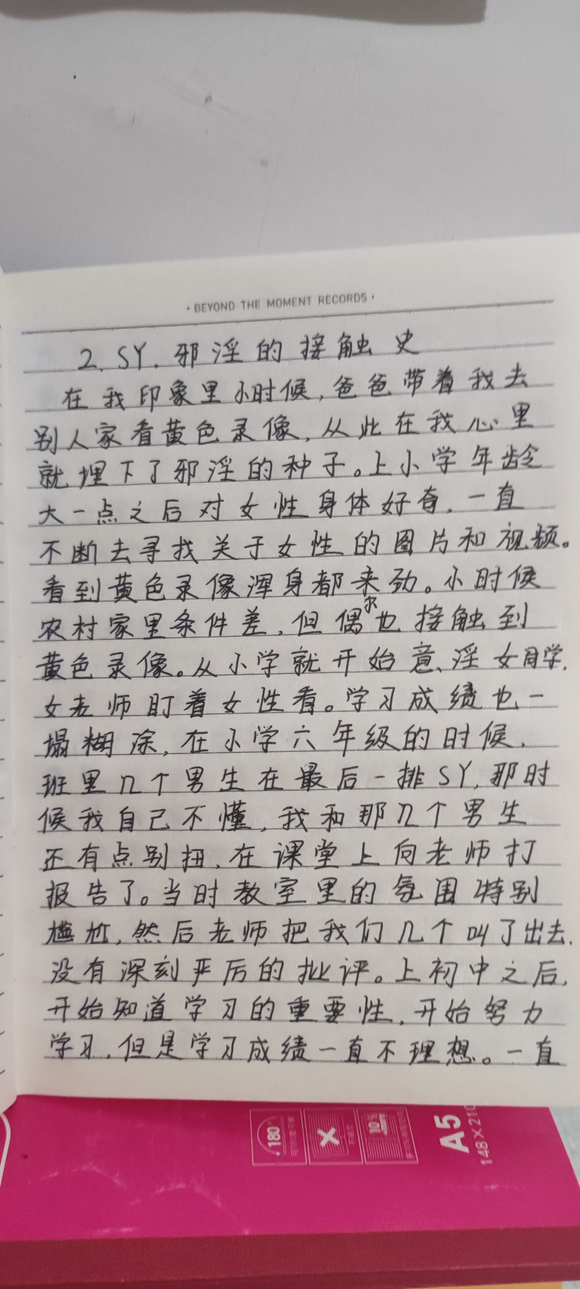 · BEYOND THE MOMENT RECORDS ·
2、SY、邪淫的接触史
在我印象里小时候,爸爸带着我去
别人家看黄色录像,从此在我心里
就埋下了邪淫的种子。上小学年龄
大一点之后对女性身体好奇,一直
不断去寻找关于女性的图片和视频。
看到黄色录像浑身都来劲。小时候
农村家里条件差,但偶尔也接触到
黄色录像。从小学就开始意淫女同学,
女老师盯着女性看。学习成绩也一
塌糊涂,在小学六年级的时候,
班里几个男生在最后一排SY,那时
候我自己不懂,我和那几个男生
还有点别扭,在课堂上向老师打
报告了。当时教室里的氛围特别
尴尬,然后老师把我们几个叫了出去,
没有深刻严厉的批评。上初中之后,
开始知道学习的重要性,开始努力
学习,但是学习成绩一直不理想。一直
180
10%
A5
148×210